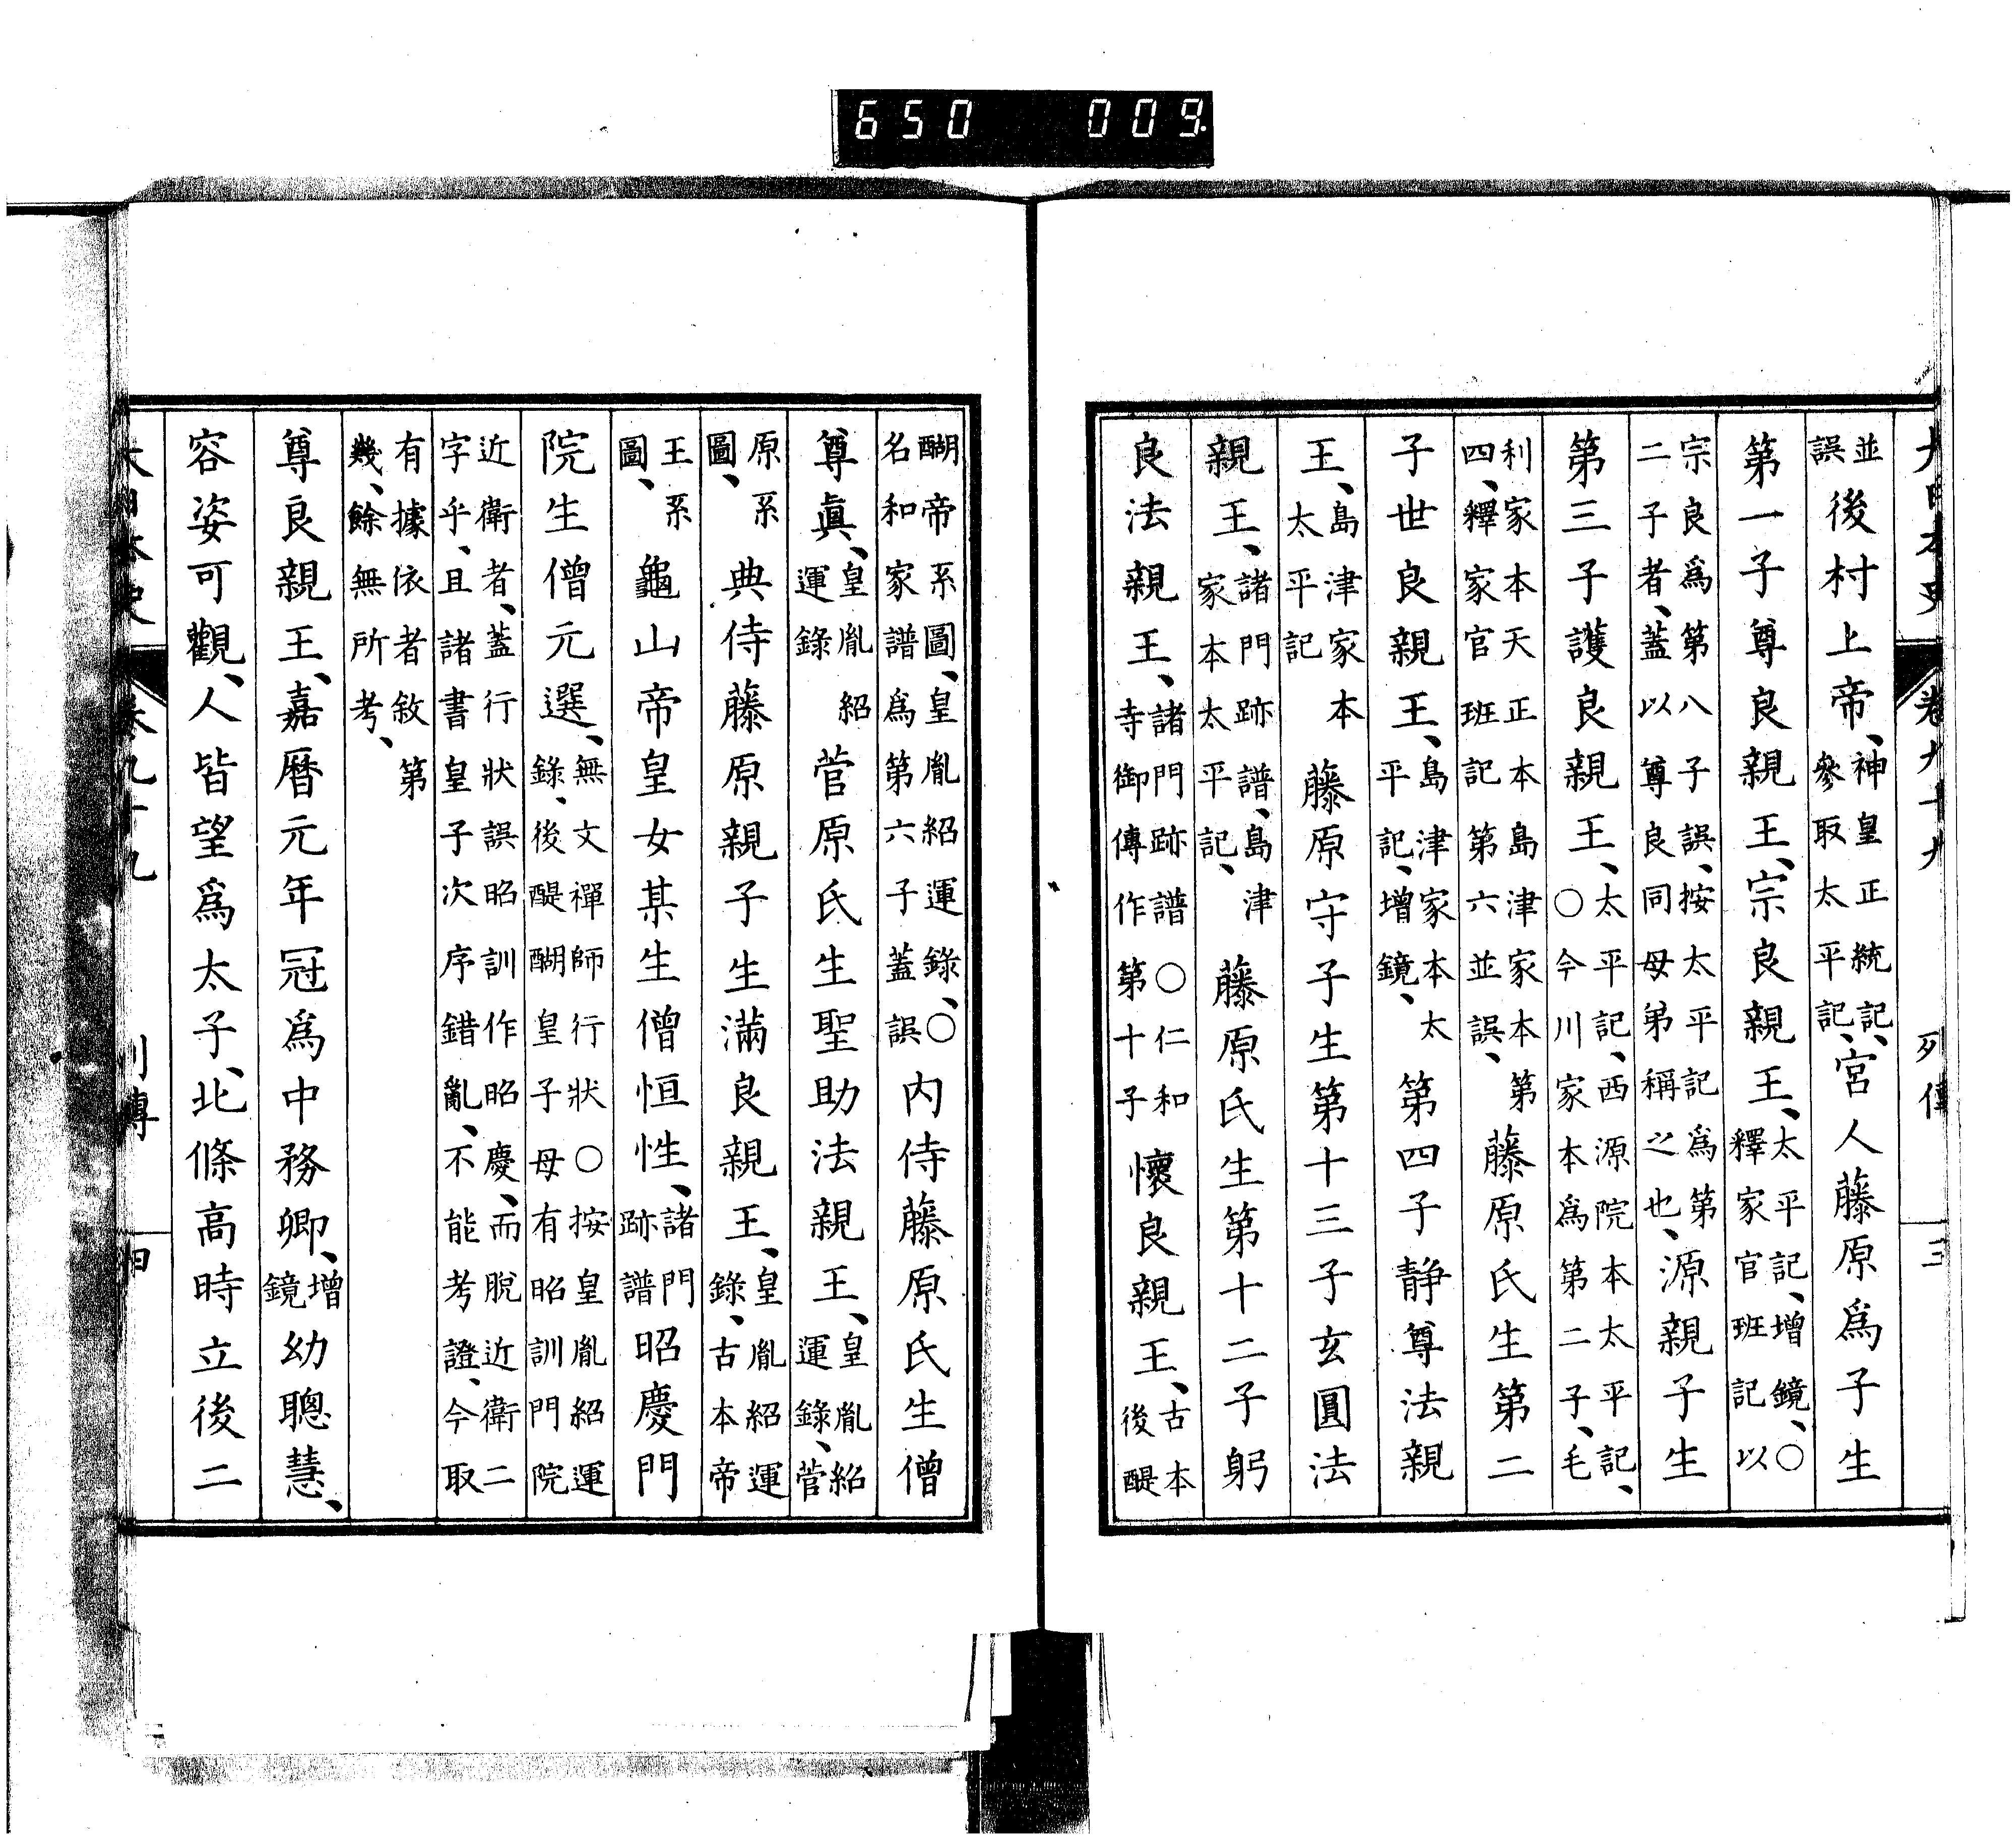 大日本史 卷九十九 列傳 三
並誤後村上帝、神皇正統記、參取太平記、宮人藤原爲子生
第一子尊良親王、宗良親王、太平記、增鏡、○釋家官班記以
宗良爲第八子誤、按太平記爲第二子者、蓋以尊良同母弟稱之也、源親子生
第三子護良親王、太平記、西源院本太平記、○今川家本爲第二子、毛
利家本天正本島津家本第四、釋家官班記第六並誤、藤原氏生第二
子世良親王、島津家本太平記、增鏡、第四子静尊法親
王、島津家本太平記藤原守子生第十三子玄圓法
親王、諸門跡譜、島津家本太平記、藤原氏生第十二子躬
良法親王、諸門跡譜○仁和寺御傳作第十子懷良親王、古本後醍
醐帝系圖、皇胤紹運錄、○名和家譜爲第六子蓋誤內侍藤原氏生僧
尊眞、皇胤紹運錄菅原氏生聖助法親王、皇胤紹運錄、菅
原系圖、典侍藤原親子生滿良親王、皇胤紹運錄、古本帝
王系圖、龜山帝皇女某生僧恒性、諸門跡譜昭慶門
院生僧元選、無文禪師行狀○按皇胤紹運錄、後醍醐皇子母有昭訓門院
近衛者、蓋行狀誤昭訓作昭慶、而脫近衛二字乎、且諸書皇子次序錯亂、不能考證、今取
有據依者敘第幾、餘無所考、
尊良親王、嘉曆元年冠爲中務卿、增鏡幼聰慧、
容姿可觀、人皆望爲太子、北條高時立後二
大日本史 卷九十九 列傳 四